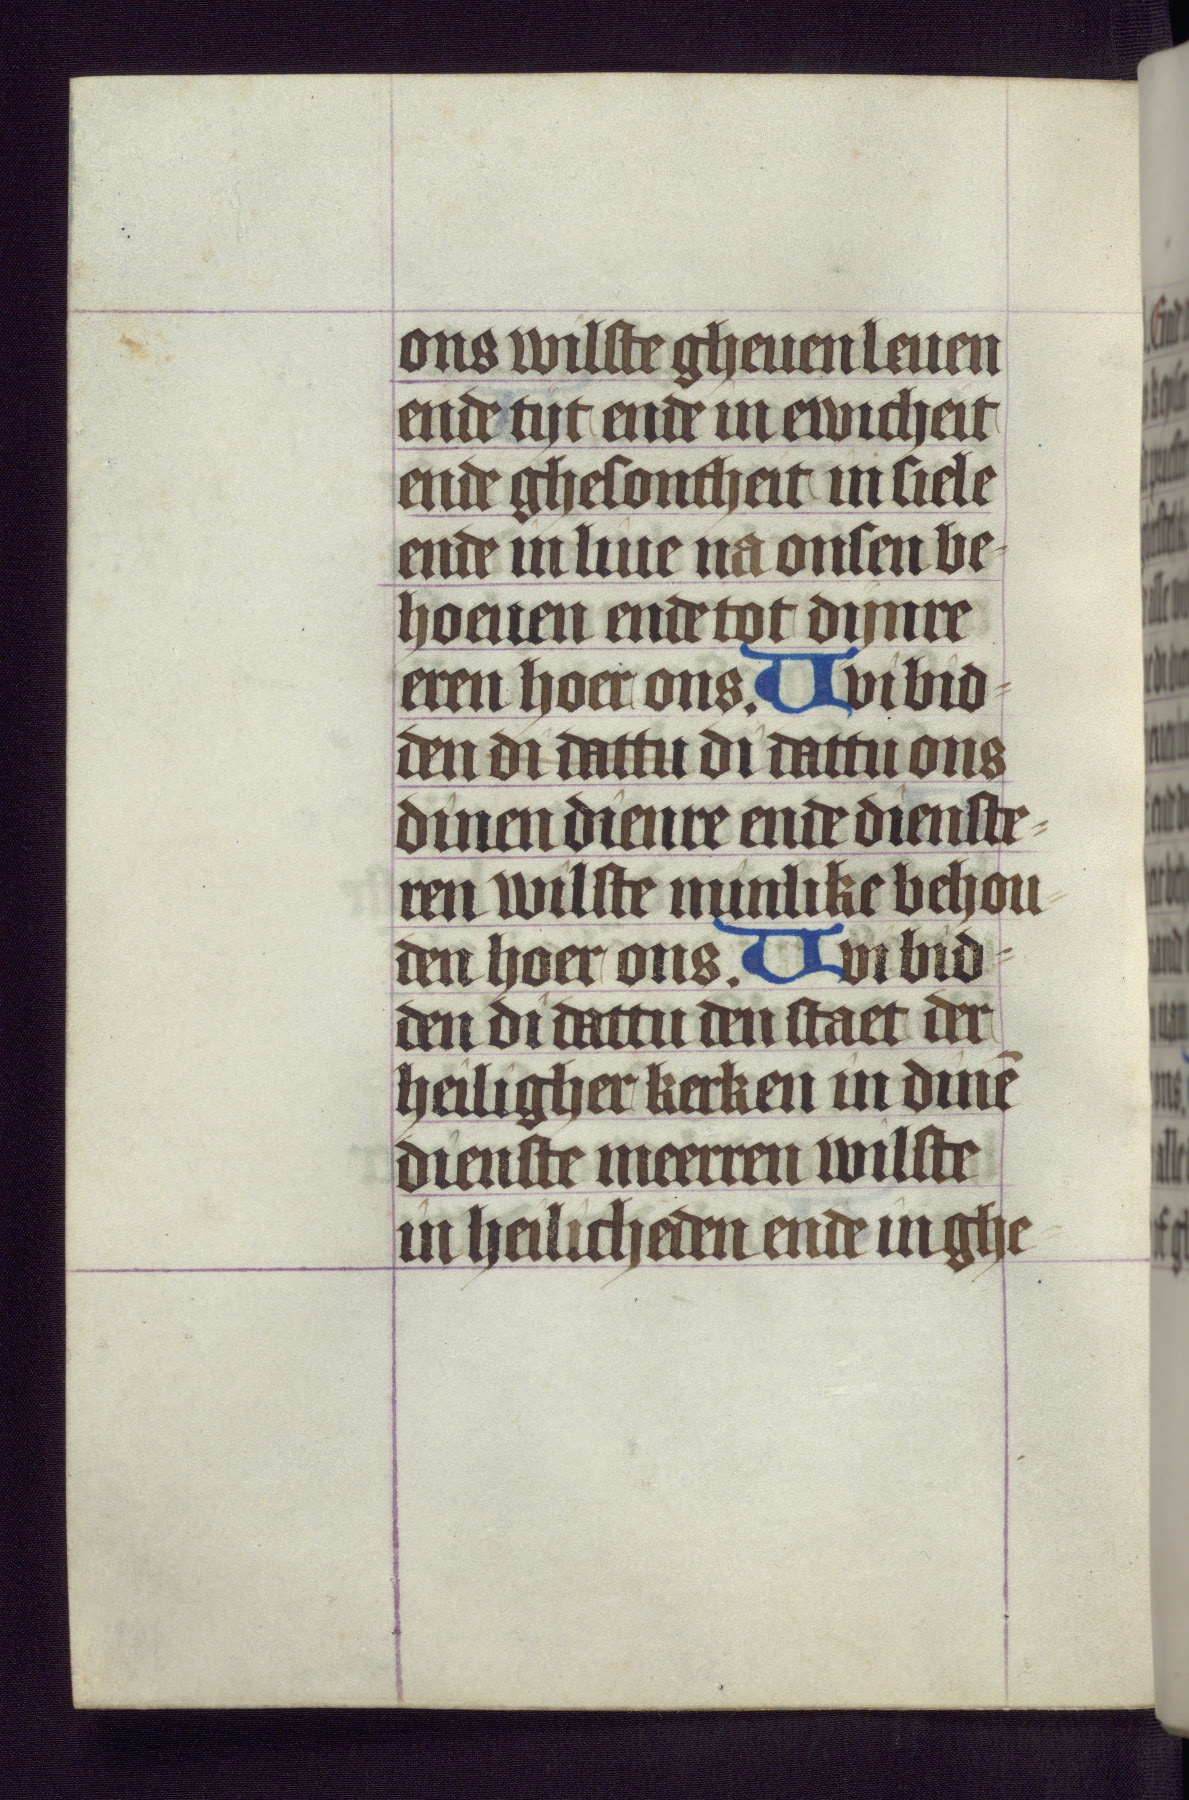 ons wilste gheuen leuen
ende tijt ende in ewicheit
ende ghesontheit in siele
ende in liue na onsen be-
hoeuen ende tot dijnre
eren hoer ons. Wi bid-
den di dattu di dattu ons
dinen dienre ende dienste-
ren wilste minlike behou-
den hoer ons. Wi bid-
den di dattu den staet der
heiligher kerken in dinē
dienste meerren wilste
in heilicheden ende in ghe-